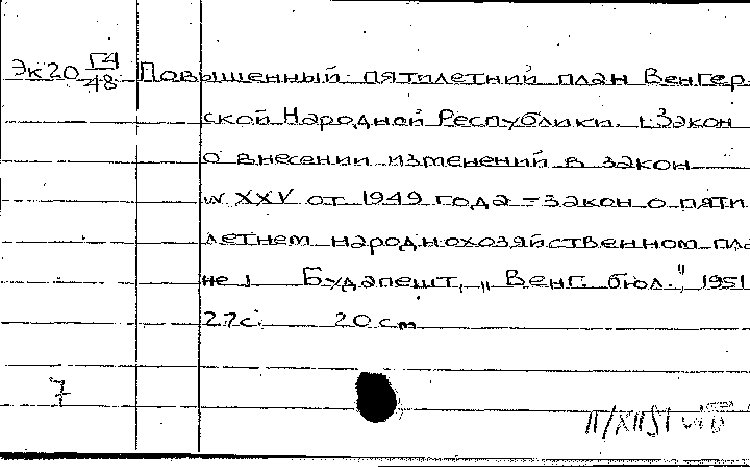 Эк20 Г4/48 Повышенный пятилетний план Венгер-
ской Народной Республики. (Закон
о внесении изменений в закон
№ XXV от 1949 года – закон о пяти-
летнем народнохозяйственном пла-
не) Будапешт, „Венг. бюл.", 1951
27с. 20 см
7
11/XII51